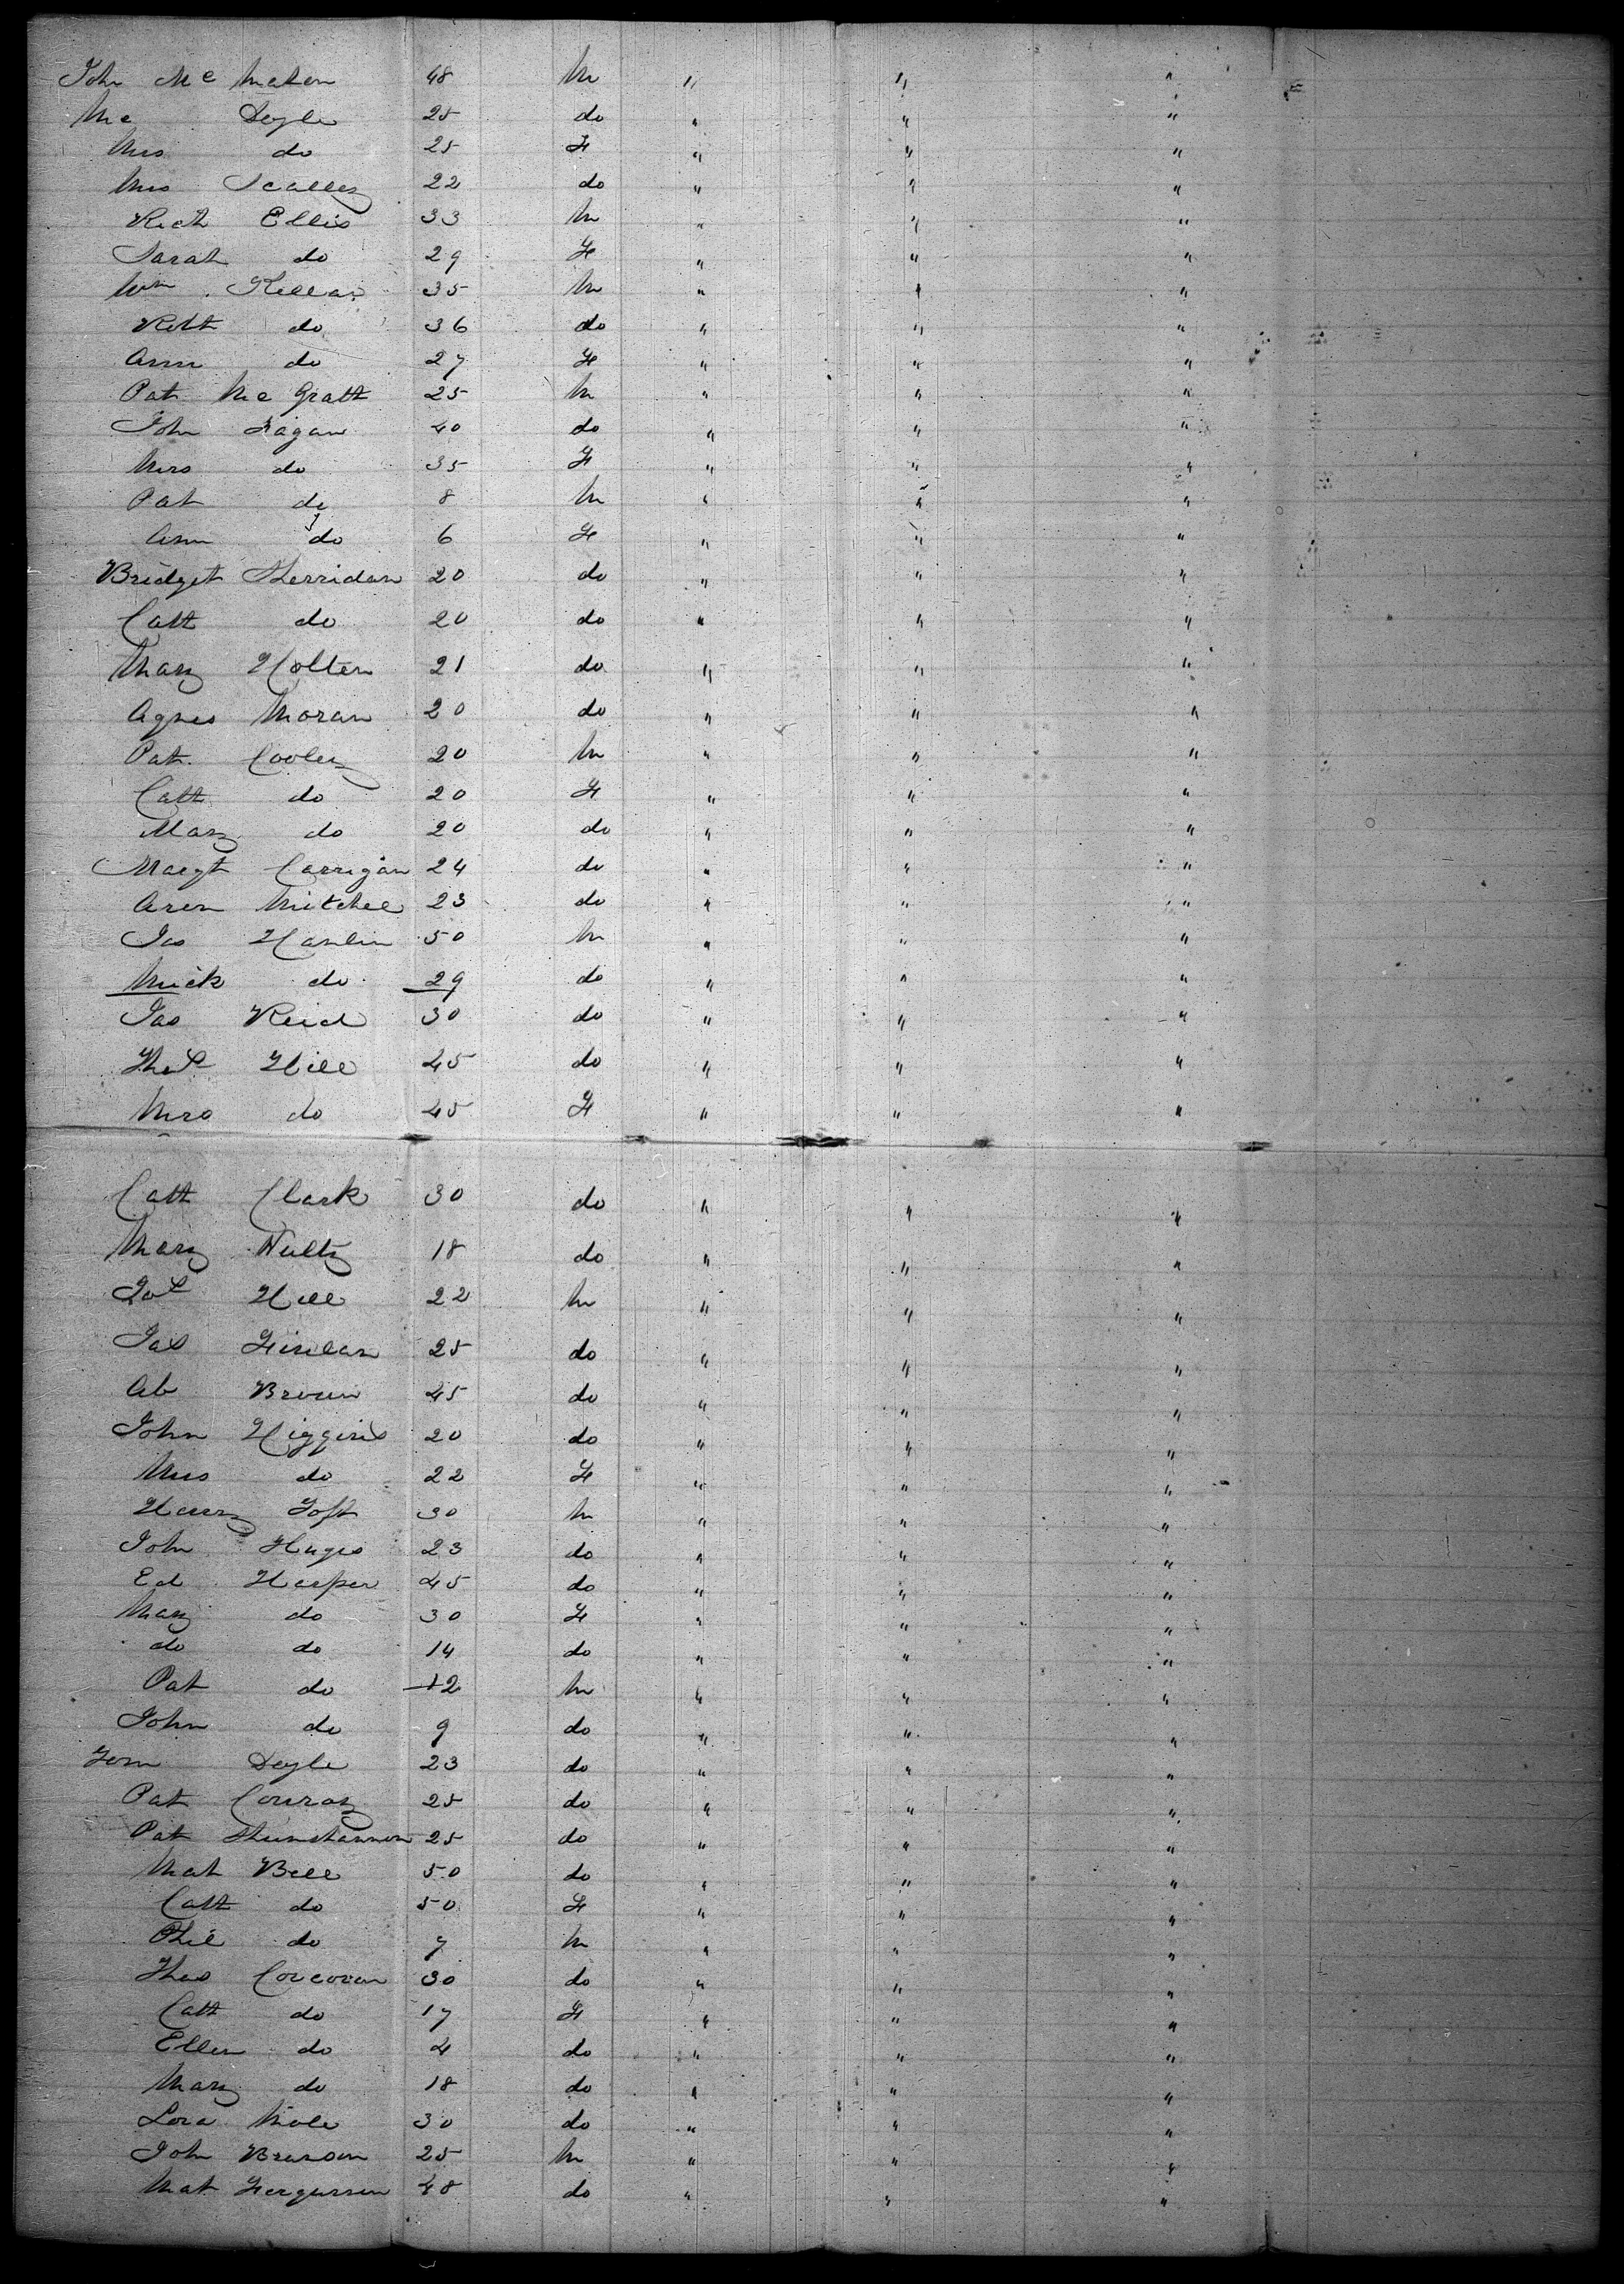 John Mc Mahon 48 M " " "
Mc Doyle 25 do " " "
Mrs do 25 F " " "
Mrs Scalley 22 do " " "
Rich Ellis 33 M " " "
Sarah do 29 F " " "
Wm Kellar 35 M " " "
Robt do 36 do " " "
Ann do 27 F " " "
Pat Mc Grath 25 M " " "
John Fagan 40 do " " "
Mrs do 35 F " " "
Pat do 8 M " " "
Ann do 6 F " " "
Bridget Sherridan 20 do " " "
Cath do 20 do " " "
Mary Holten 21 do " " "
Agnes Moran 20 do " " "
Pat Cooley 20 M " " "
Cath do 20 F " " "
Mary do 20 do " " "
Margt Carrigan 24 do " " "
Ann Mitchel 23 do " " "
Jas Hanlin 50 M " " "
Mick do 29 do " " "
Jas Reid 30 do " " "
Thos Hill 45 do " " "
Mrs do 45 F " " "
Cath Clark 30 do " " "
Mary Nulty 18 do " " "
Jos Hill 22 M " " "
Jas Finlan 25 do " " "
Ab Brown 45 do " " "
John Higgins 20 do " " "
Mrs do 22 F " " "
Harry Toft 30 M " " "
John Huges 23 do " " "
Ed Harper 45 do " " "
Mary do 30 F " " "
do do 14 do " " "
Pat do 12 M " " "
John do 9 do " " "
Tom Doyle 23 do " " "
Pat Conroy 25 do " " "
Pat 25 do " " "
Mat Bell 50 do " " "
Cath do 50 F " " "
Phil do 7 M " " "
Thos Corcoran 30 do " " "
Cath do 17 F " " "
Ellen do 4 do " " "
Mary do 18 do " " "
Lora Mole 30 do " " "
John Branson 25 M " " "
Mat Fergussen 48 do " " "